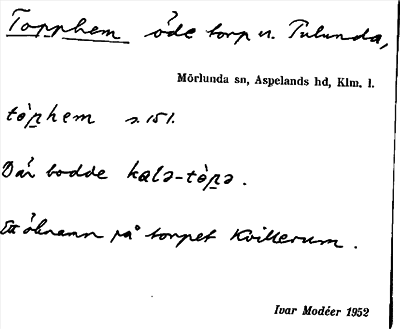 Topphem öde torp u. Tulunda,
Mörlunda sn, Aspelands hd, Klm. l.
tòp̲hem s. 151.
Där bodde kalə-tòp̲ə.
Ett öknamn på torpet Kvillerum.
Ivar Modéer 1952